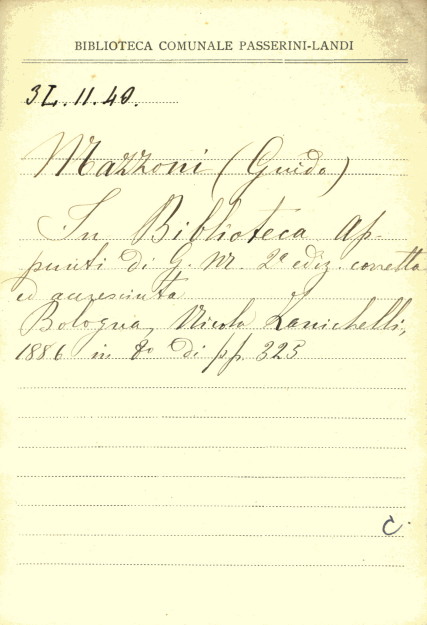 BIBLIOTECA COMUNALE PASSERINI-LANDI
3L.11.40.
Mazzoni (Guido)
In Biblioteca Ap-
punti di G. M. 2ª ediz. corretta
ed accresciuta
Bologna, Nicola Zanichelli,
1886 in 8º di pp. 325
C.